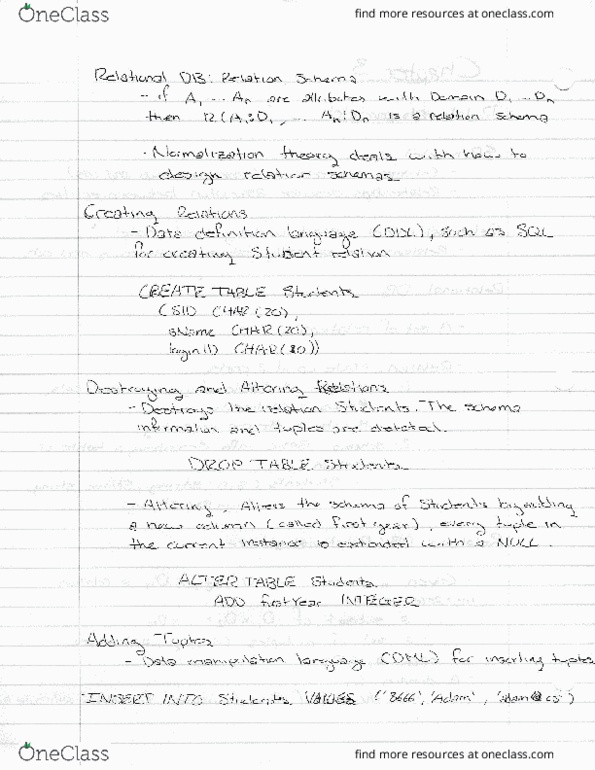 OneClass
find more resources at oneclass.com
Relational DB: Relation Schema
- if A1 ... An are attributes with Domain D1 ... Dn
then R(A1:D1, ... An:Dn is a relation schema
· Normalization theory deals with how to
design relation schemas.
Creating Relations
- Data definition language (DDL), such as SQL
for creating Student relation
CREATE TABLE Students
(SID CHAR(20),
sName CHAR(20),
CHAR(20))
Destroying and Altering Relations
- Destroys the relation Students. The schema
information and tuples are deleted.
DROP TABLE Students
- Altering, Alters the schema of Students by adding
a new column (called first year), every tuple in
the current instance is extended with a NULL.
ALTER TABLE Students
ADD firstYear INTEGER
Adding Tuples
- Data manipulation language (DML) for inserting tuples
INSERT INTO Students VALUES ('8666', 'Adam', 'adam@cs')
OneClass
find more resources at oneclass.com